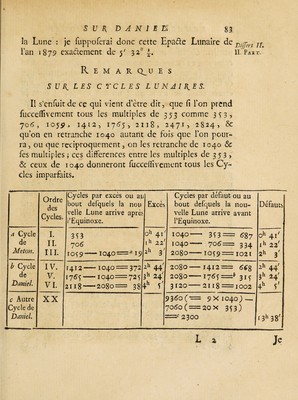 SUR DANIEL. 83
la Lune : je supposerai donc cette Epacte Lunaire de
l'an 1879 exactement de 5ʲ 32ᵉ ½.
Dissert II.
II. PART.
REMARQUES
SUR LES CYCLES LUNAIRES.
Il s'ensuit de ce qui vient d'être dit, que si l'on prend
successivement tous les multiples de 353 comme 353,
706, 1059, 1412, 1765, 2118, 2471, 2824, &
qu'on en retranche 1040 autant de fois que l'on pour-
ra, ou que reciproquement, on les retranche de 1040 &
ses multiples; ces differences entre les multiples de 353,
& ceux de 1040 donneront successivement tous les Cy-
cles imparfaits.
Ordre des Cycles. | Cycles par excés ou au bout desquels la nou- velle Lune arrive après l'Equinoxe. | Excés | Cycles par défaut ou au bout desquels la nou- velle Lune arrive avant l'Equinoxe. | Défauts
a Cycle I. 353 0h 41' 1040— 353 = 687 0h 41'
de II. 706 1h 22' 1040— 706 = 334 1h 22'
Meton. III. 1059—1040=ᵃ19 2h 3' 2080—1059=1021 2h 3'
b Cycle IV. 1412—1040=372 2h 44' 2080—1412= 668 2h 44'
de V. 1765—1040=725 3h 24' 2080—1765=ᵇ315 3h 24'
Daniel. VI. 2118—2080= 38 4h 5' 3120—2118=1002 4h 5'
c Autre XX 9360(= 9×1040)—
Cycle de 7060(=20× 353)
Daniel. =ᶜ2300 13h 38'
L 2 Je